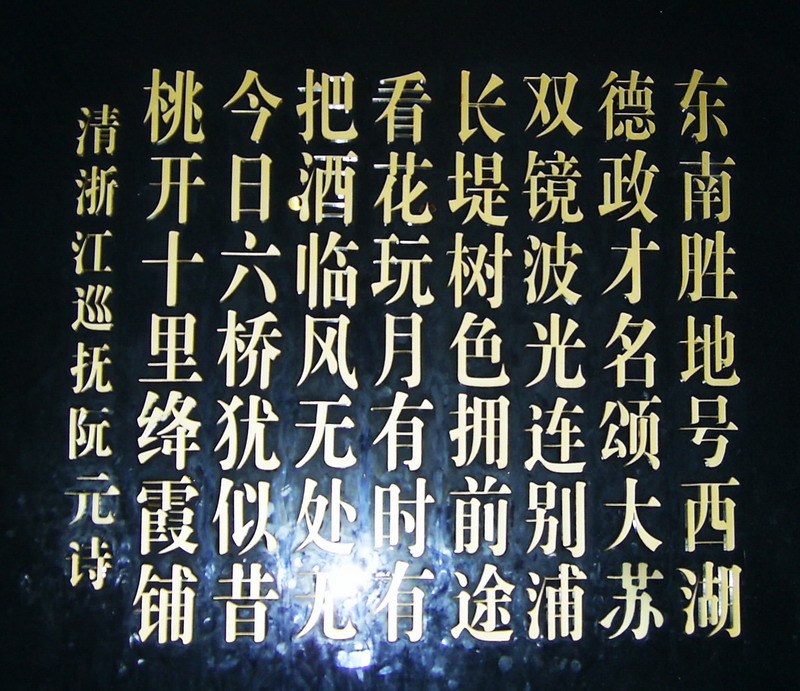 东南胜地号西湖
德政才名颂大苏
双镜波光连别浦
长堤树色拥前途
看花玩月有时有
把酒临风无处无
今日六桥犹似昔
桃开十里绛霞铺
清浙江巡抚阮元诗